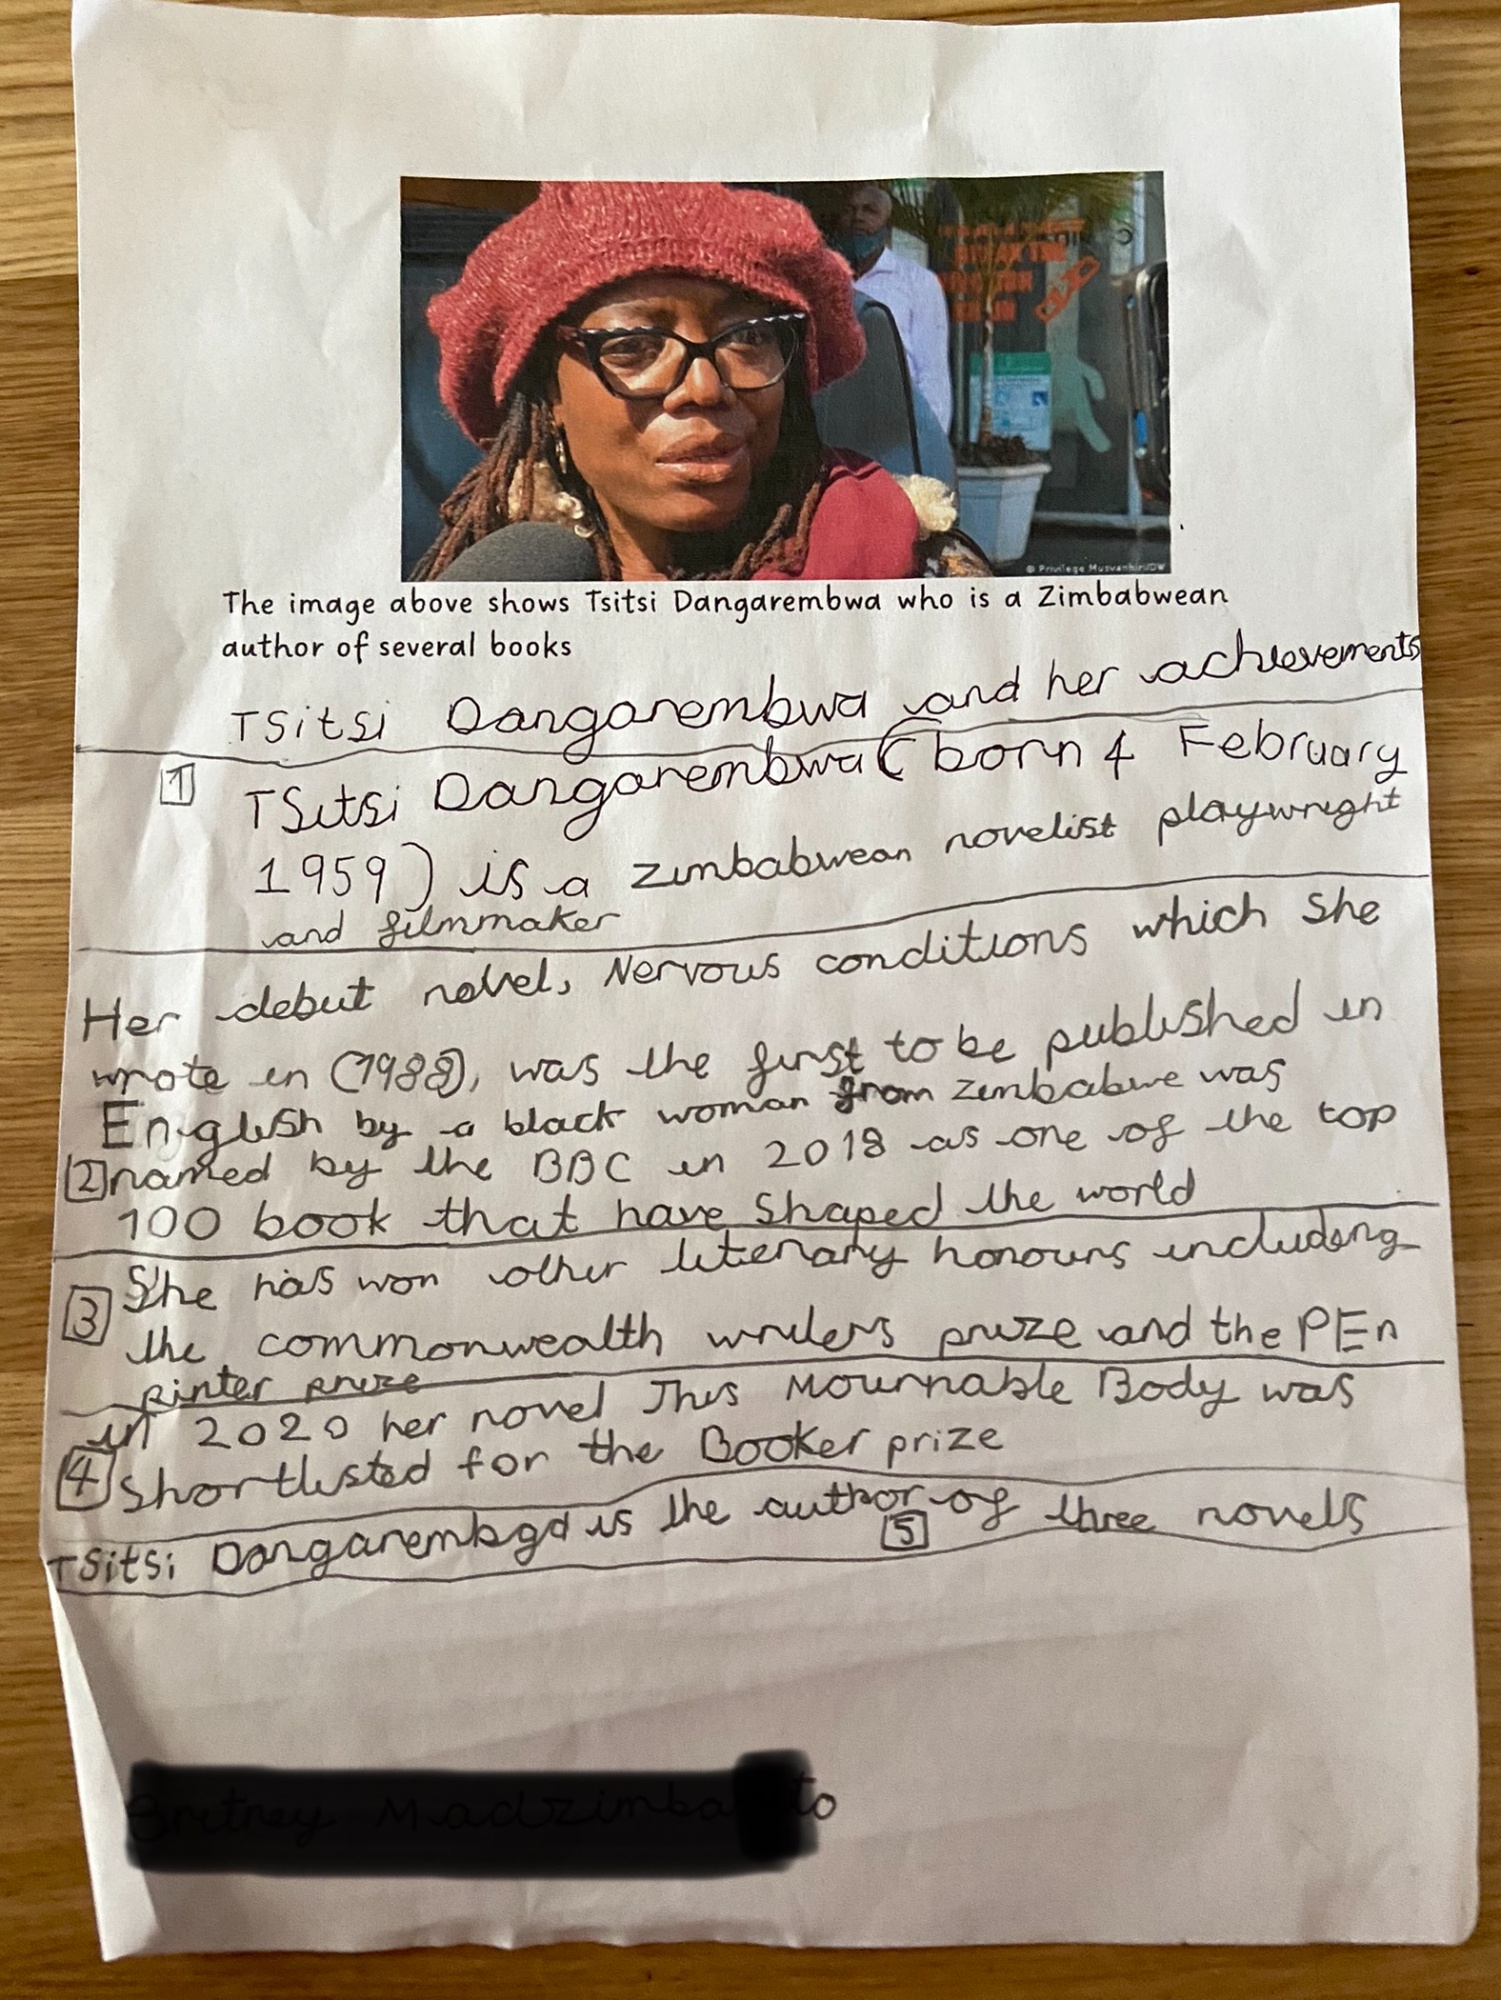 © Privilege Musvanhiri/DW
The image above shows Tsitsi Dangarembwa who is a Zimbabwean
author of several books
Tsitsi Dangarembwa and her achievements
1 Tsitsi Dangarembwa (born 4 February
1959) is a zimbabwean novelist playwright
and filmmaker
Her debut novel, Nervous conditions which she
wrote in (1988), was the first to be published in
English by a black woman from zimbabwe was
2 named by the BBC in 2018 as one of the top
100 book that have shaped the world
3 She has won other literary honours including
the commonwealth writers prize and the PEn
pinter prize
in 2020 her novel This Mournable Body was
4 Shortlisted for the Booker prize
Tsitsi Dangarembga is the author of three novels
5